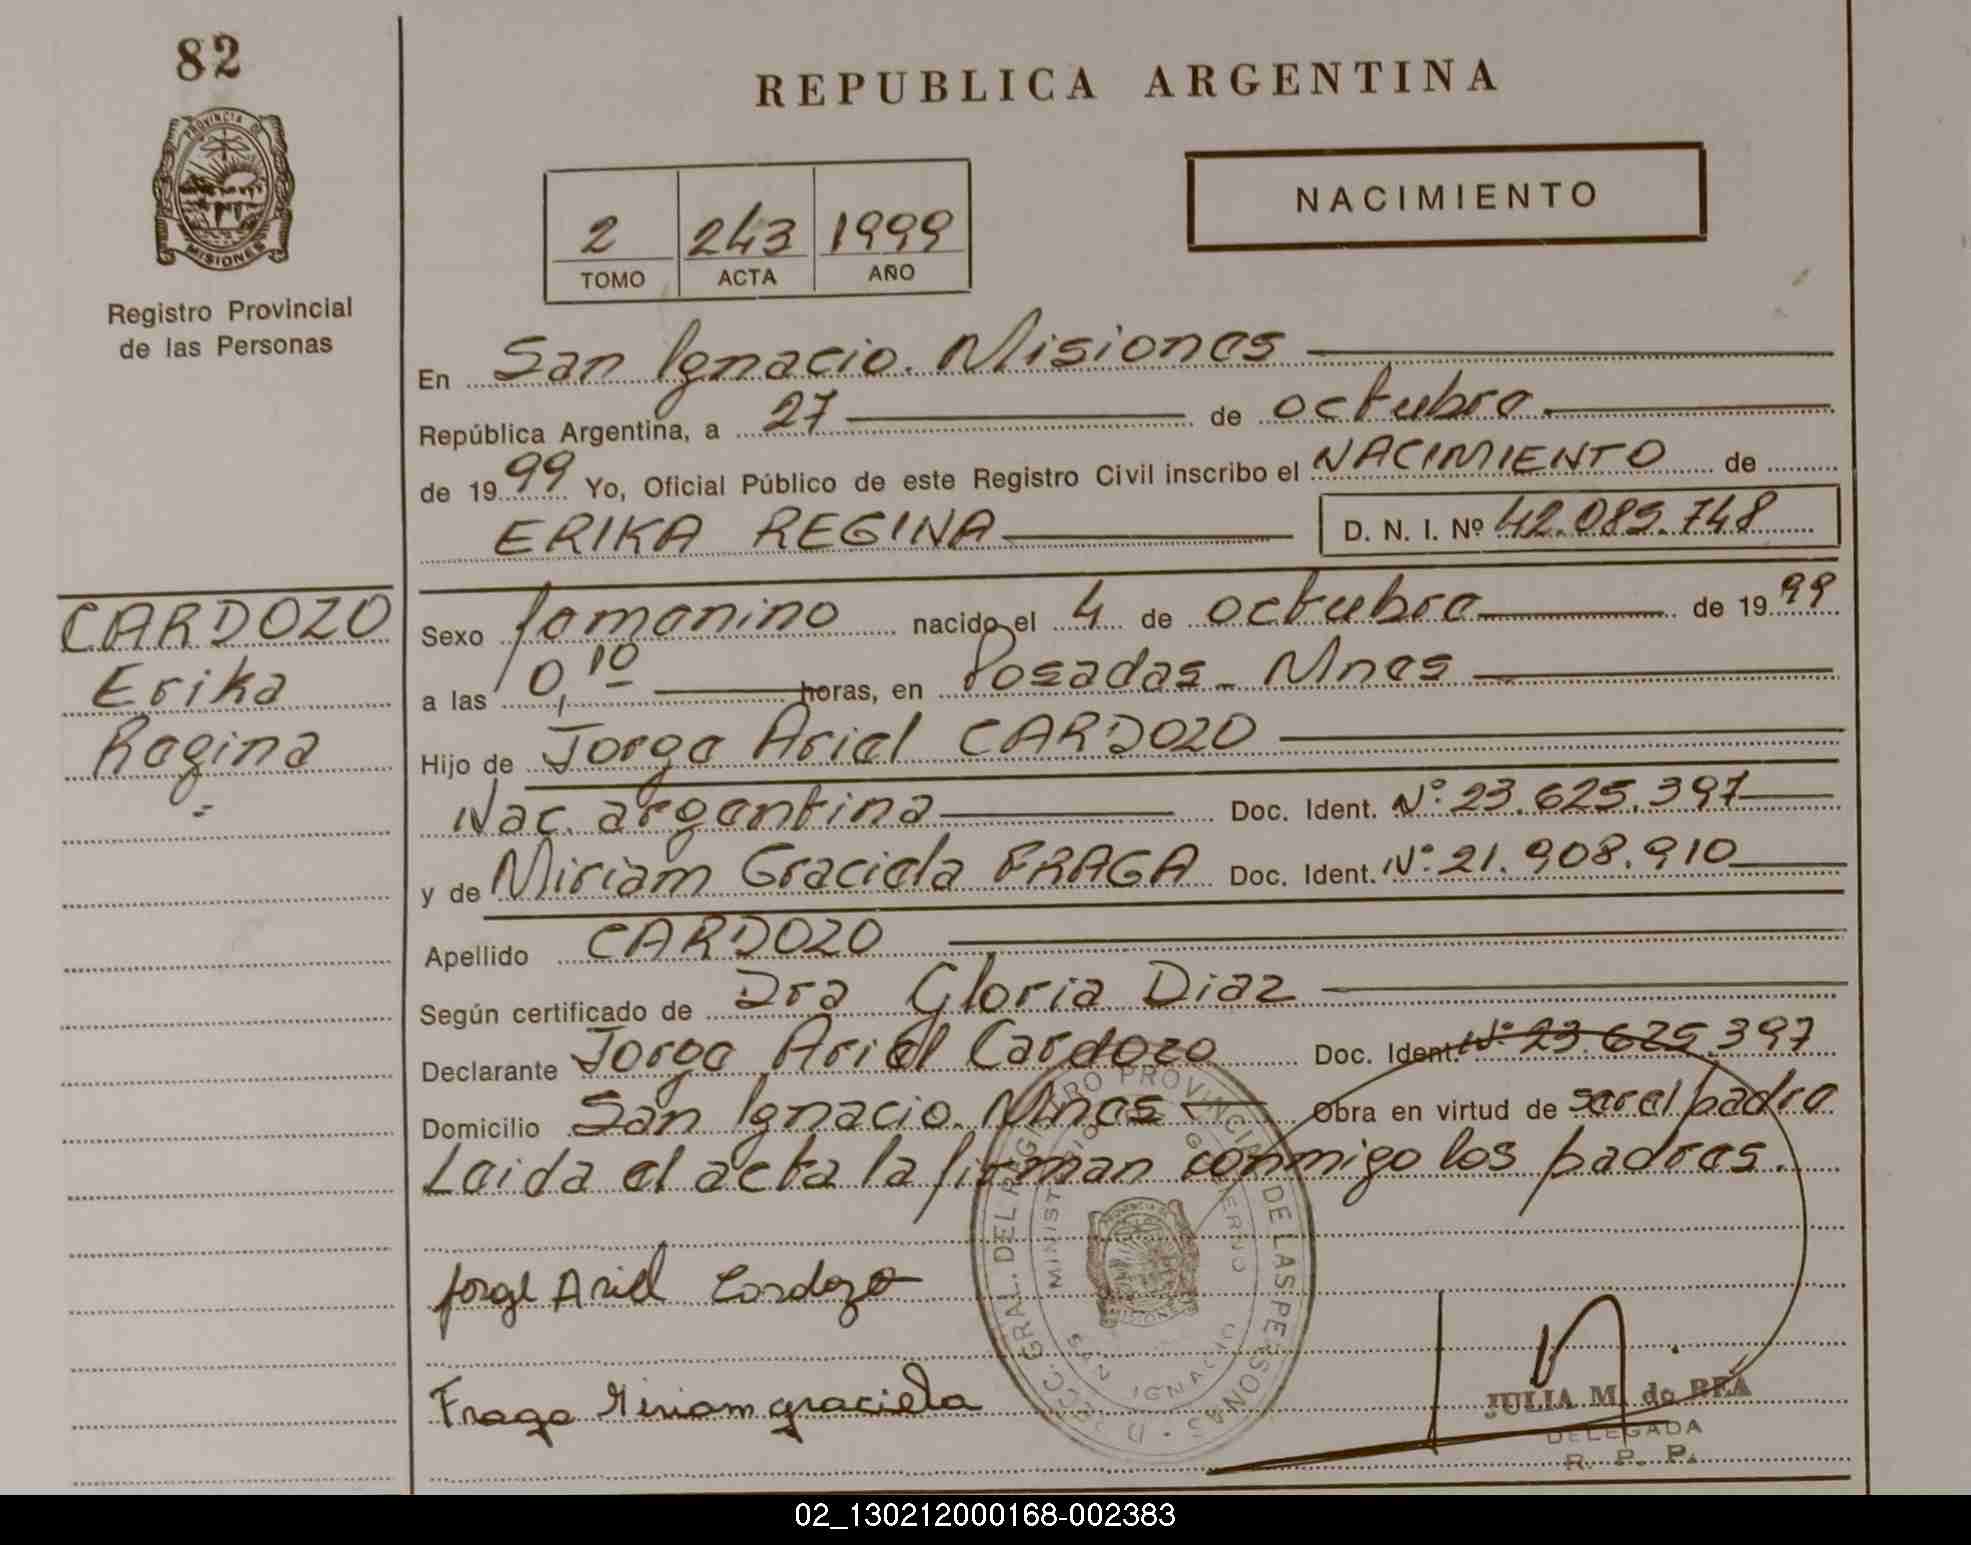 82
PROVINCIA DE
MISIONES
Registro Provincial
de las Personas
REPUBLICA ARGENTINA
2 243 1999
TOMO ACTA AÑO
NACIMIENTO
En San Ignacio. Misiones
República Argentina, a 27 de octubre.
de 1999 Yo, Oficial Público de este Registro Civil inscribo el NACIMIENTO de
ERIKA REGINA D. N. I. Nº 42.089.748
CARDOZO
Erika
Regina
Sexo femenino nacido el 4 de octubre de 1999
a las 0,10 horas, en Posadas - Mnes
Hijo de Jorge Ariel CARDOZO
Nac. argentina Doc. Ident. Nº: 23.625.397
y de Miriam Graciela FRAGA Doc. Ident. Nº: 21.908.910
Apellido CARDOZO
Según certificado de Dra Gloria Diaz
Declarante Jorge Ariel Cardozo Doc. Ident. Nº 23.625.397
Domicilio San Ignacio. Mnes Obra en virtud de ser el padre
Leida el acta la firman conmigo los padres.
Jorge Ariel Cardozo
Fraga Miriam graciela
DIRECC. GRAL. DEL REGISTRO PROVINCIAL DE LAS PERSONAS
MINISTERIO GOBIERNO
SAN IGNACIO
JULIA M. de REA
DELEGADA
R. P. P.
02_130212000168-002383